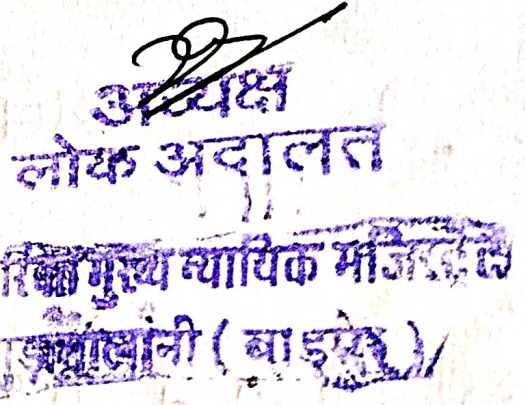 अध्यक्ष
लोक अदालत
मुख्य न्यायिक मजिस्ट्रेट
(बाड़मेर)